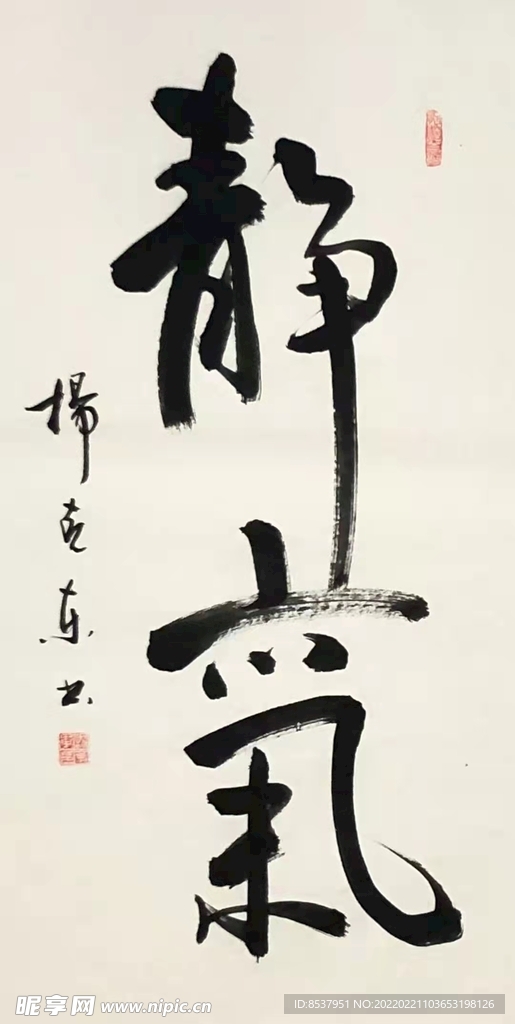 靜氣
楊克东书
昵享网 www.nipic.cn
ID:8537951 NO:20220221103653198126